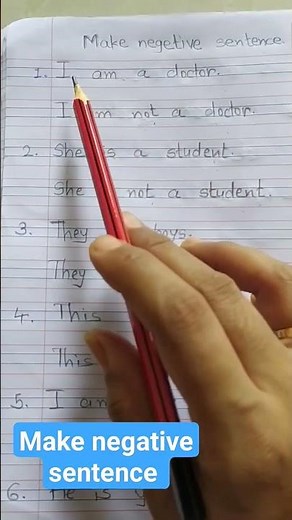 Make negetive sentence
1. I am a doctor.
I am not a doctor.
2. She is a student.
She not a student.
3. They boys.
They
4. This
This
5. I am
Make negative
sentence
6. He is